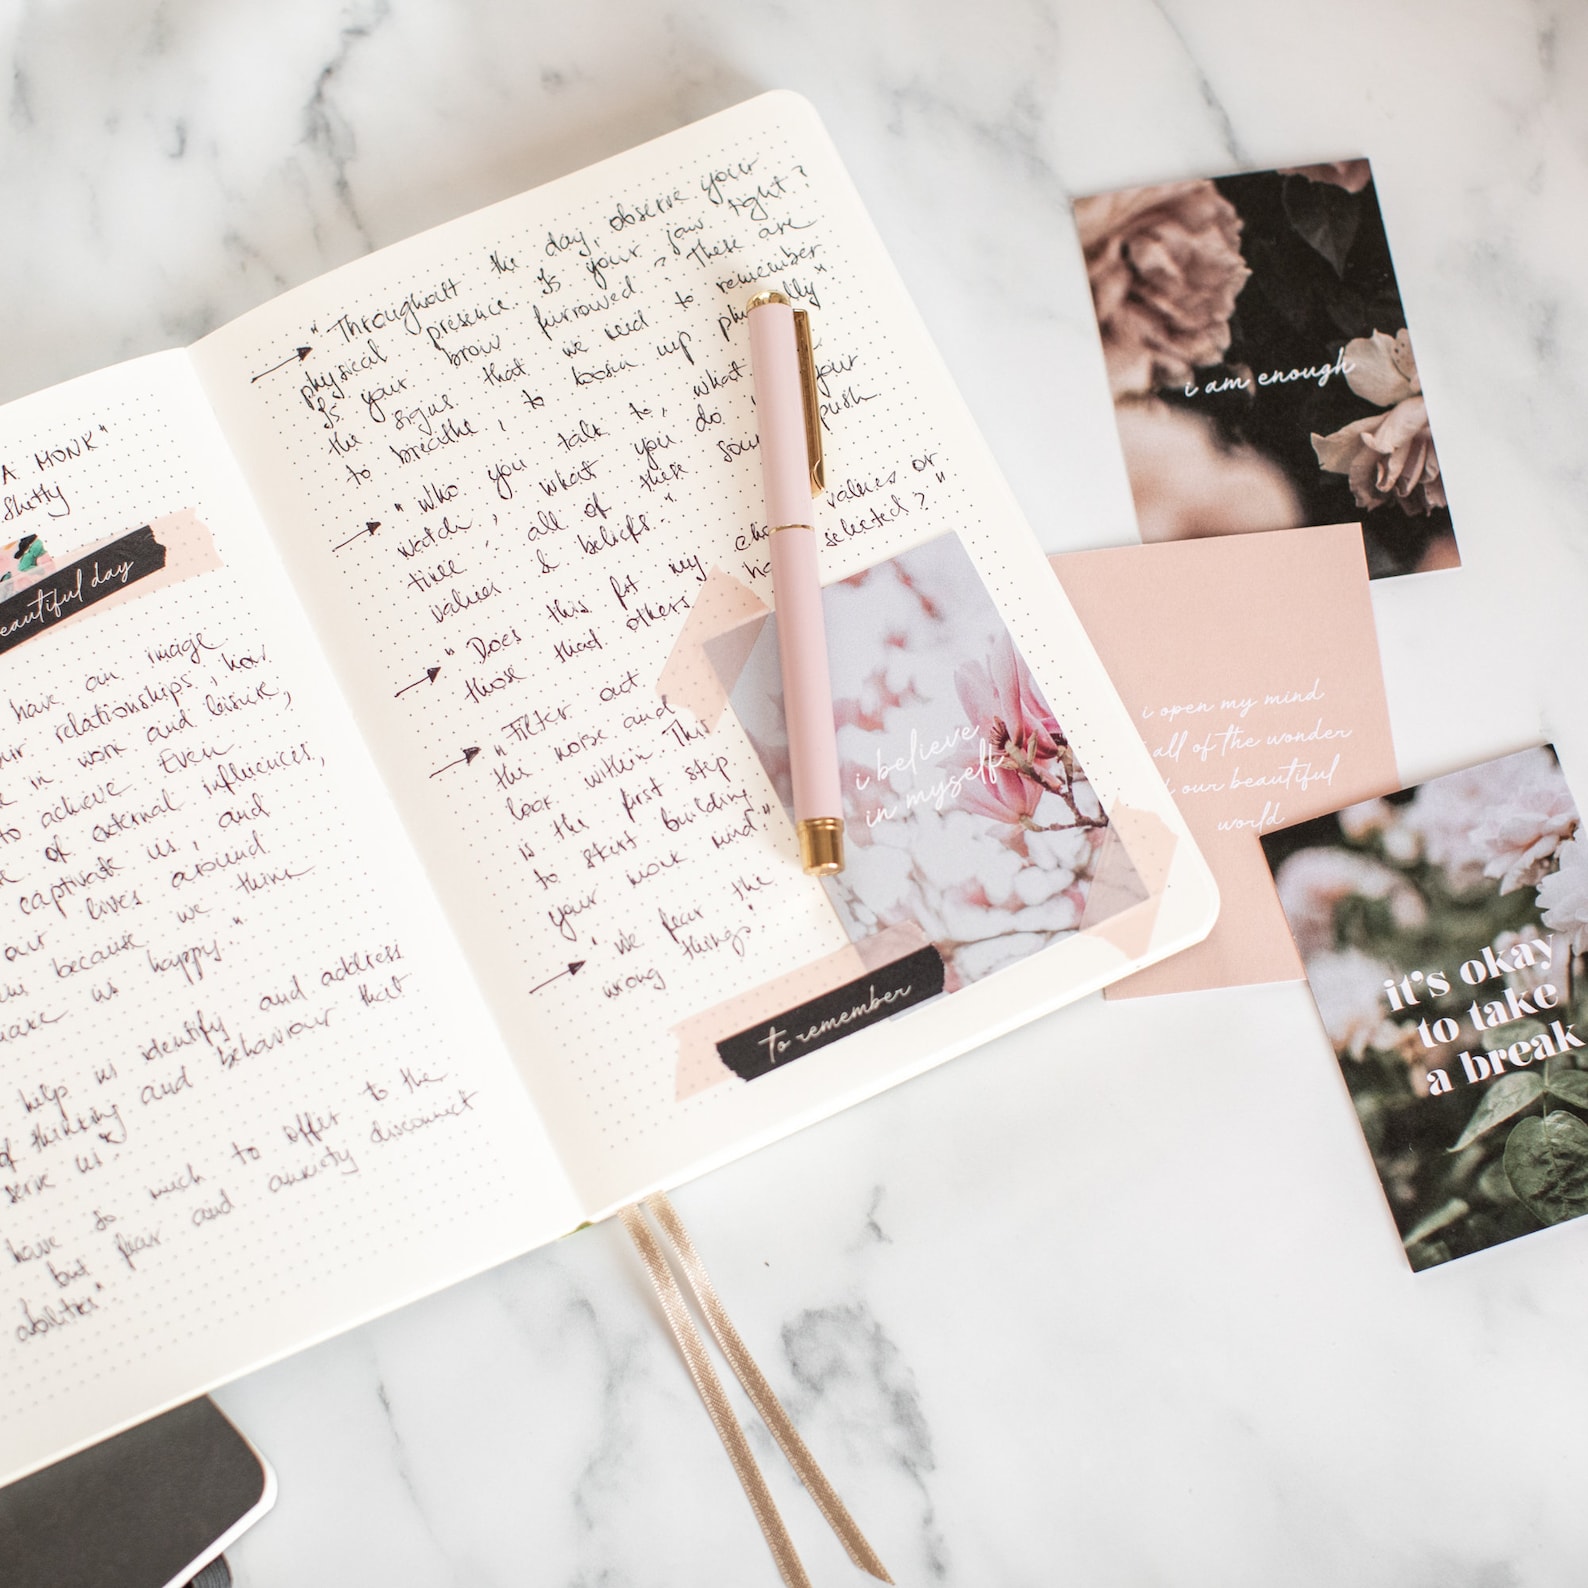 A MONK"
Shetty
beautiful day
have an image
our relationships, how
in work and leisure,
to achieve. Even
of external influences,
captivate us, and
our lives around
because we think
make us happy."
help us identify and address
of thinking and behaviour that
serve us"
have so much to offer to the
but fear and anxiety disconnect
abilities"
"Throughout the day, observe your
physical presence. Is your jaw tight?
Is your brow furrowed? These are
the signs that we need to remember
to breathe, to loosen up physically"
"Who you talk to, what you
watch, what you do with your
time: all of these sources push
values & beliefs".
"Does this fit my chosen values or
those thad others have selected?"
"Filter out
the noise and
look within. This
is the first step
to start building
your monk mind."
"We fear the
wrong things".
i believe
in myself
to remember
i am enough
i open my mind
all of the wonder
our beautiful
world
it's okay
to take
a break